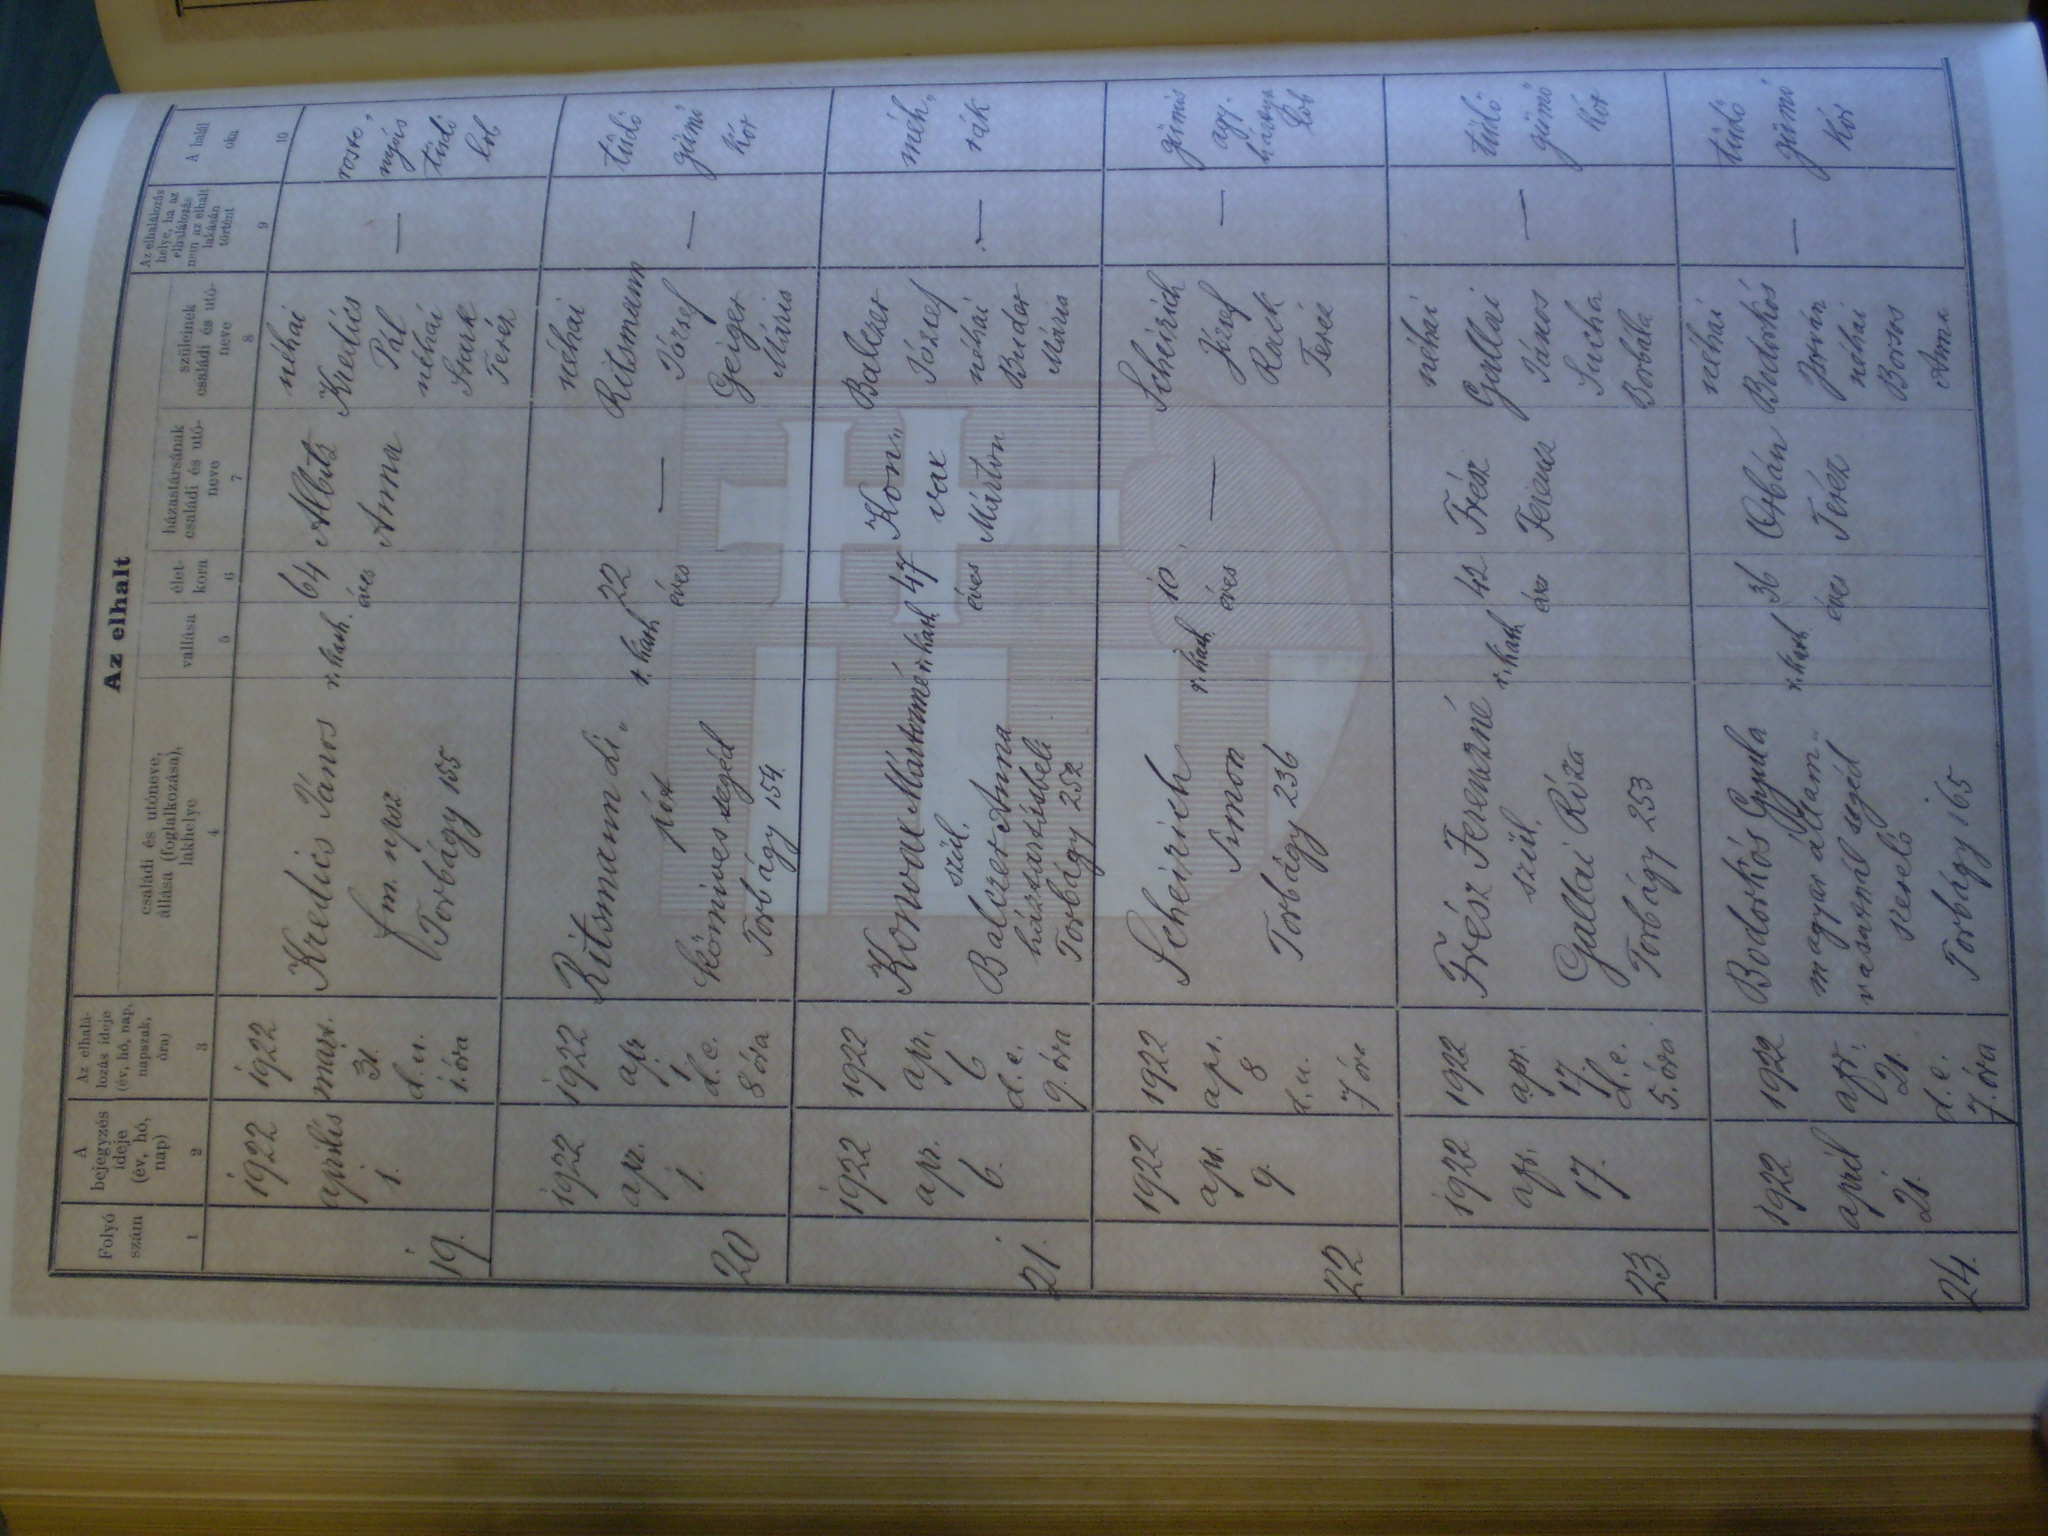 Az elhalt
Folyó
szám
A
bejegyzés
ideje
(év, hó,
nap)
Az elhalá-
lozás ideje
(év, hó, nap,
napszak,
óra)
családi és utóneve,
állása (foglalkozása),
lakhelye
vallása
élet-
kora
házastársának
családi és utó-
neve
szüleinek
családi és utó-
neve
Az elhalálozás
helye, ha az
elhalálozás
nem az elhalt
lakásán
történt
A halál
oka
1
2
3
4
5
6
7
8
9
10
19.
1922
április
1.
1922
márs.
31.
d. u.
1. óra
Kredics János
fm. npsz
Torbágy 155
r. kath.
64
éves
Albitz
Anna
néhai
Kredics
Pál
néhai
Stark
Teréz
—
rosto„
nyás
tüdő
lob
20
1922
apr.
1.
1922
apr
1.
d. e.
8 óra
Ritsmann Li„
pót
kőmives segéd
Torbágy 154.
r. kath
22
éves
—
néhai
Ritsmann
József
Geiger
Mária
—
tüdő
gümő
kór
21.
1922
apr.
6.
1922
apr.
6
d. e.
9. óra
Konvax Mártonné
szül.
Balczer Anna
háztartásbeli
Torbágy 252
r. kath
47
éves
Kon„
vax
Márton
Balczer
József
néhai
Buder
Mária
—
méh„
rák
22
1922
apr.
9.
1922
apr.
8
d. u.
7 óra
Scheirich
Simon
Torbágy 236
r. kath
10
éves
—
Scheirich
József
Rack
Teréz
—
gümős
agy.
hártya
lob
23.
1922
apr.
17.
1922
apr.
17
d. e.
5. óra
Frész Ferenczné
szül.
Gallai Róza
Torbágy 253
r. kath
42
éves
Frész
Ferencz
néhai
Gallai
János
Sucha
Borbála
—
tüdő
gümő
kór
24.
1922
april
21.
1922
apr.
21.
d. e.
7. óra
Bodorkós Gyula
magyar állam„
vasutnál segéd
kezelő
Torbágy 165
r. kath
36
éves
Orbán
Teréz
néhai
Budorkós
István
néhai
Borsos
Anna
—
tüdő
gümő
kór